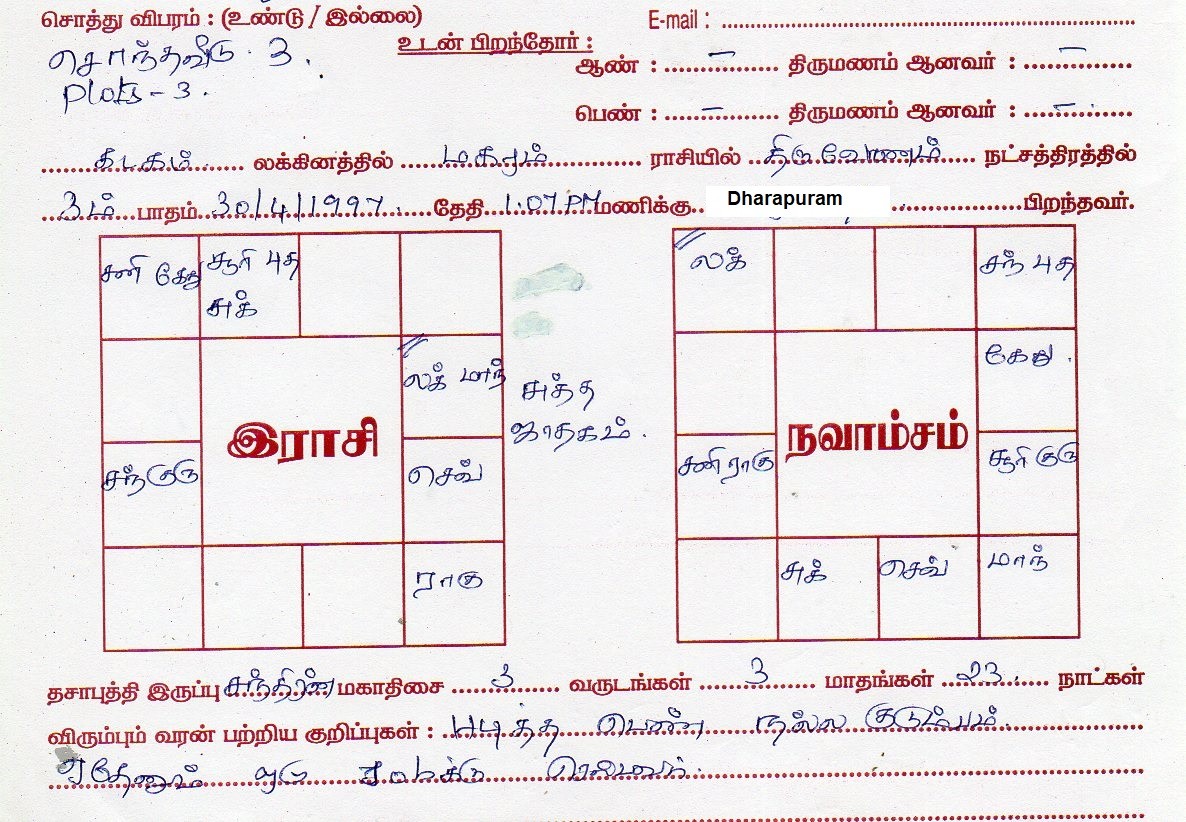 சொத்து விபரம் : (உண்டு / இல்லை)
E-mail :
சொந்தவீடு - 3.
Plots - 3.
உடன் பிறந்தோர் :
ஆண் : – திருமணம் ஆனவர் : –
பெண் : – திருமணம் ஆனவர் : –
கடகம் லக்கினத்தில் மகரம் ராசியில் திருவோணம் நட்சத்திரத்தில்
3ம் பாதம் 30/4/1997 தேதி 1.07 PM மணிக்கு Dharapuram பிறந்தவர்.
சனி கேது
சூரி புத
சுக்
லக் மாந்
இராசி
சந் குரு
செவ்
ராகு
சுத்த
ஜாதகம்.
லக்
சந் புத
கேது.
நவாம்சம்
சனி ராகு
சூரி குரு
சுக்
செவ்
மாந்
தசாபுத்தி இருப்பு சந்திரன் மகாதிசை 3 வருடங்கள் 3 மாதங்கள் 23 நாட்கள்
விரும்பும் வரன் பற்றிய குறிப்புகள் : படித்த பெண் நல்ல குடும்பம்
ஏதேனும் ஒரு